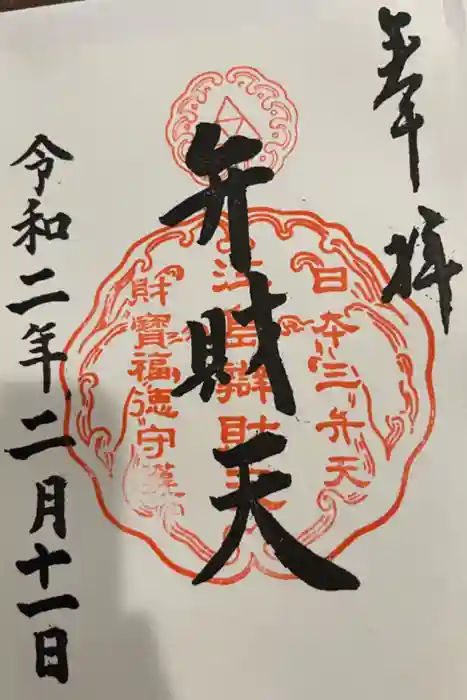 奉拝
日本三弁天
江島辯財天
財寶福徳守護
弁財天
令和二年二月十一日